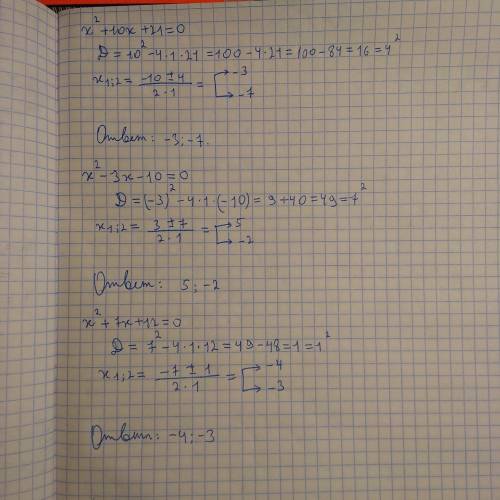 x² + 10x + 21 = 0
D = 10² - 4·1·21 = 100 - 4·21 = 100 - 84 = 16 = 4²
x₁;₂ = (-10 ± 4)/(2·1) = [→ -3
→ -7
Ответ: -3; -7.
x² - 3x - 10 = 0
D = (-3)² - 4·1·(-10) = 9 + 40 = 49 = 7²
x₁;₂ = (3 ± 7)/(2·1) = [→ 5
→ -2
Ответ: 5; -2
x² + 7x + 12 = 0
D = 7² - 4·1·12 = 49 - 48 = 1 = 1²
x₁;₂ = (-7 ± 1)/(2·1) = [→ -4
→ -3
Ответ: -4; -3